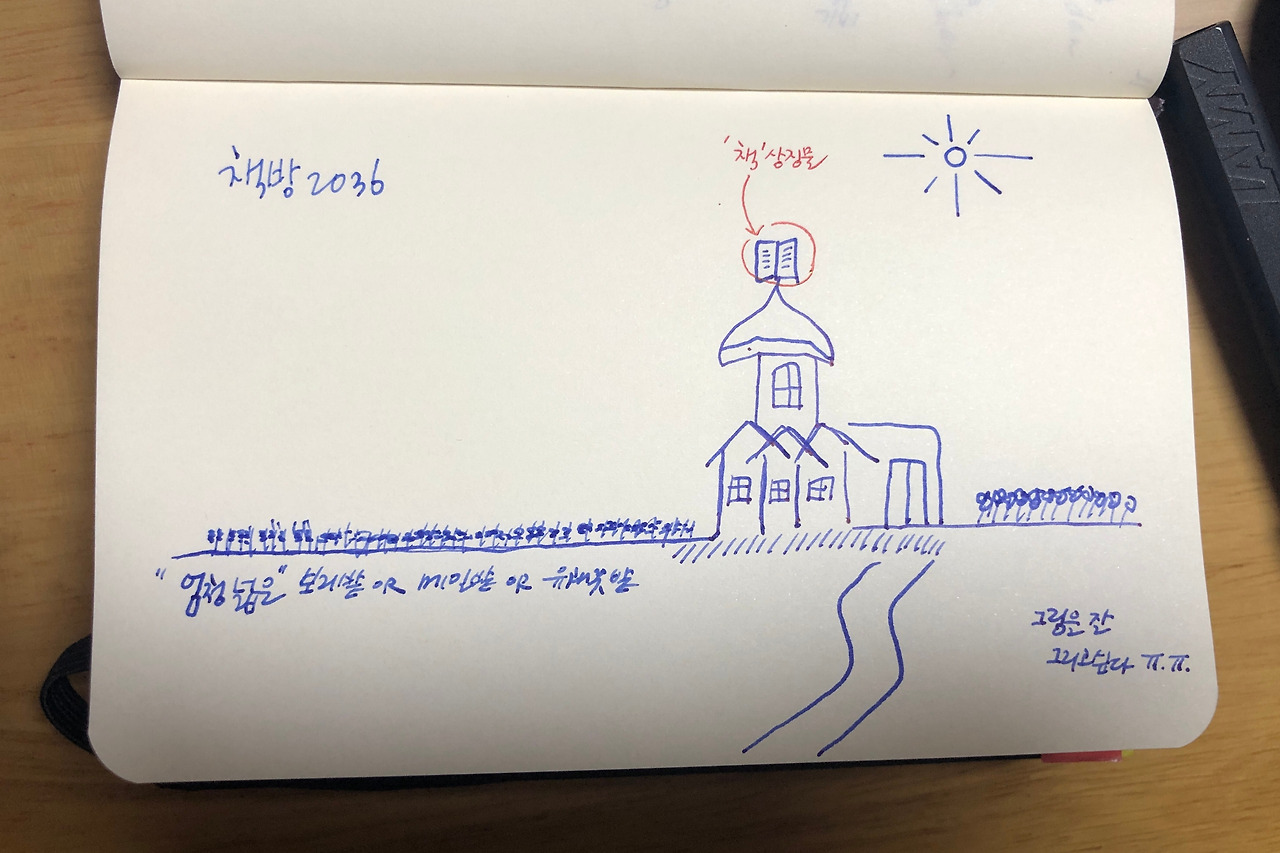 책방 2036
'책' 상징물
"엄청 넓은" 보리밭 or 메밀밭 or 유채꽃밭
그림은 잘
그리고싶다 ㅠ.ㅠ.
LAMY